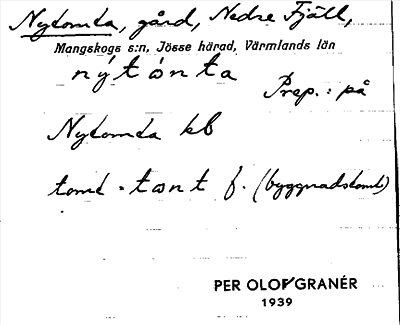 Nytomta, gård, Nedre Fjäll,
Mangskogs s:n, Jösse härad, Värmlands län
nýtònta
Prep.: på
Nytomta kb
tomt - tωnt f. (byggnadstomt)
PER OLOF GRANÉR
1939